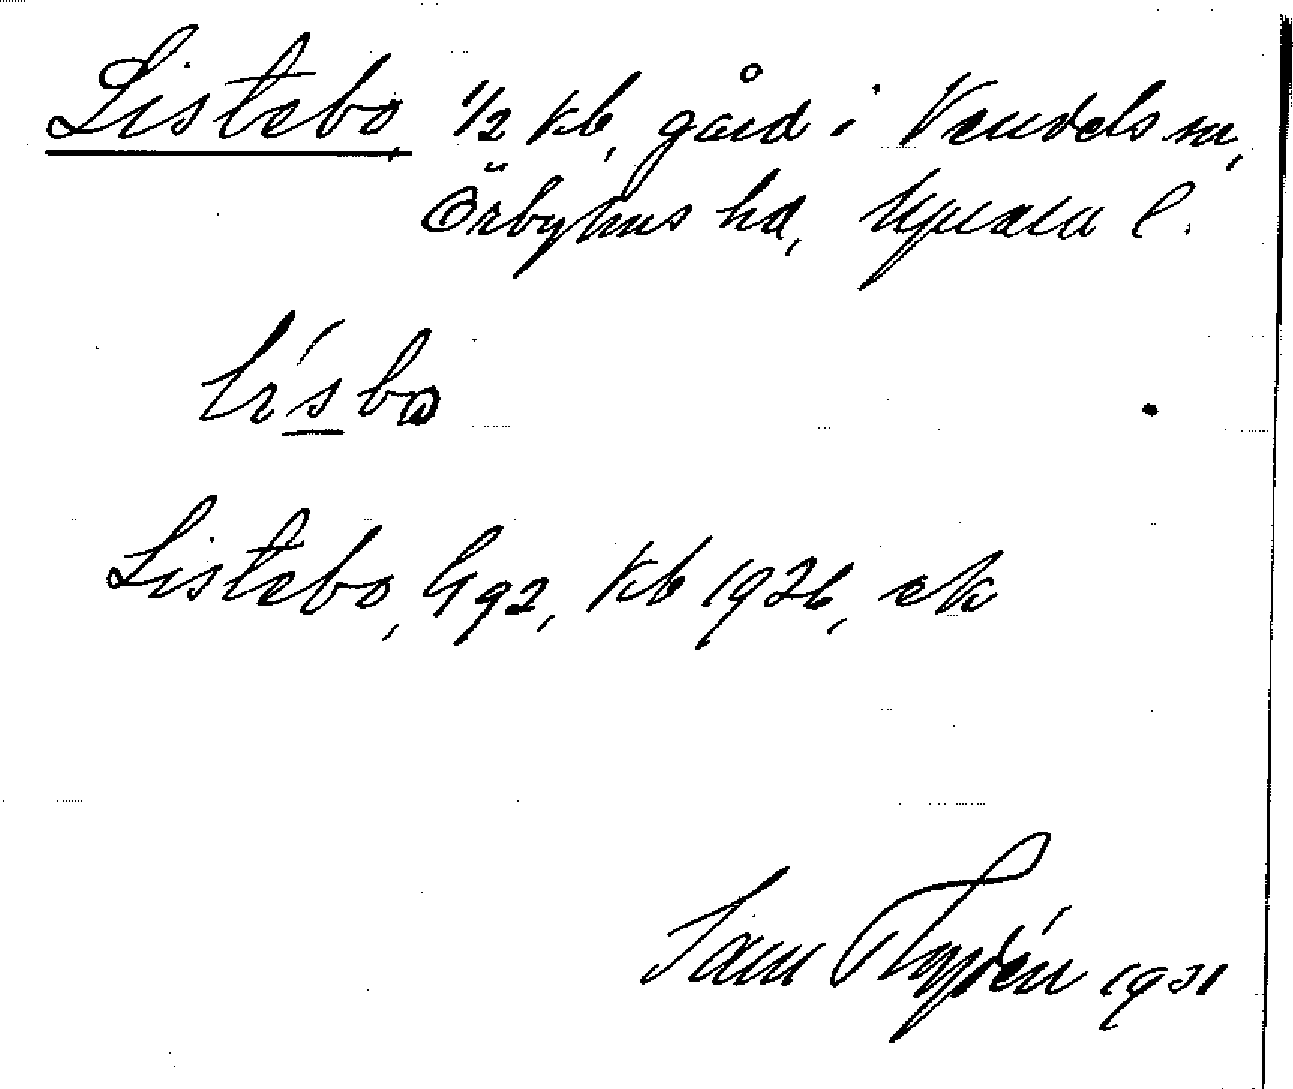 Listebo, 1/2 kb, gård i Vendels sn,
Örbyhus hd, Uppsala l.
lísbo
Listebo, G92, kb 1926, ek
Sam 1931